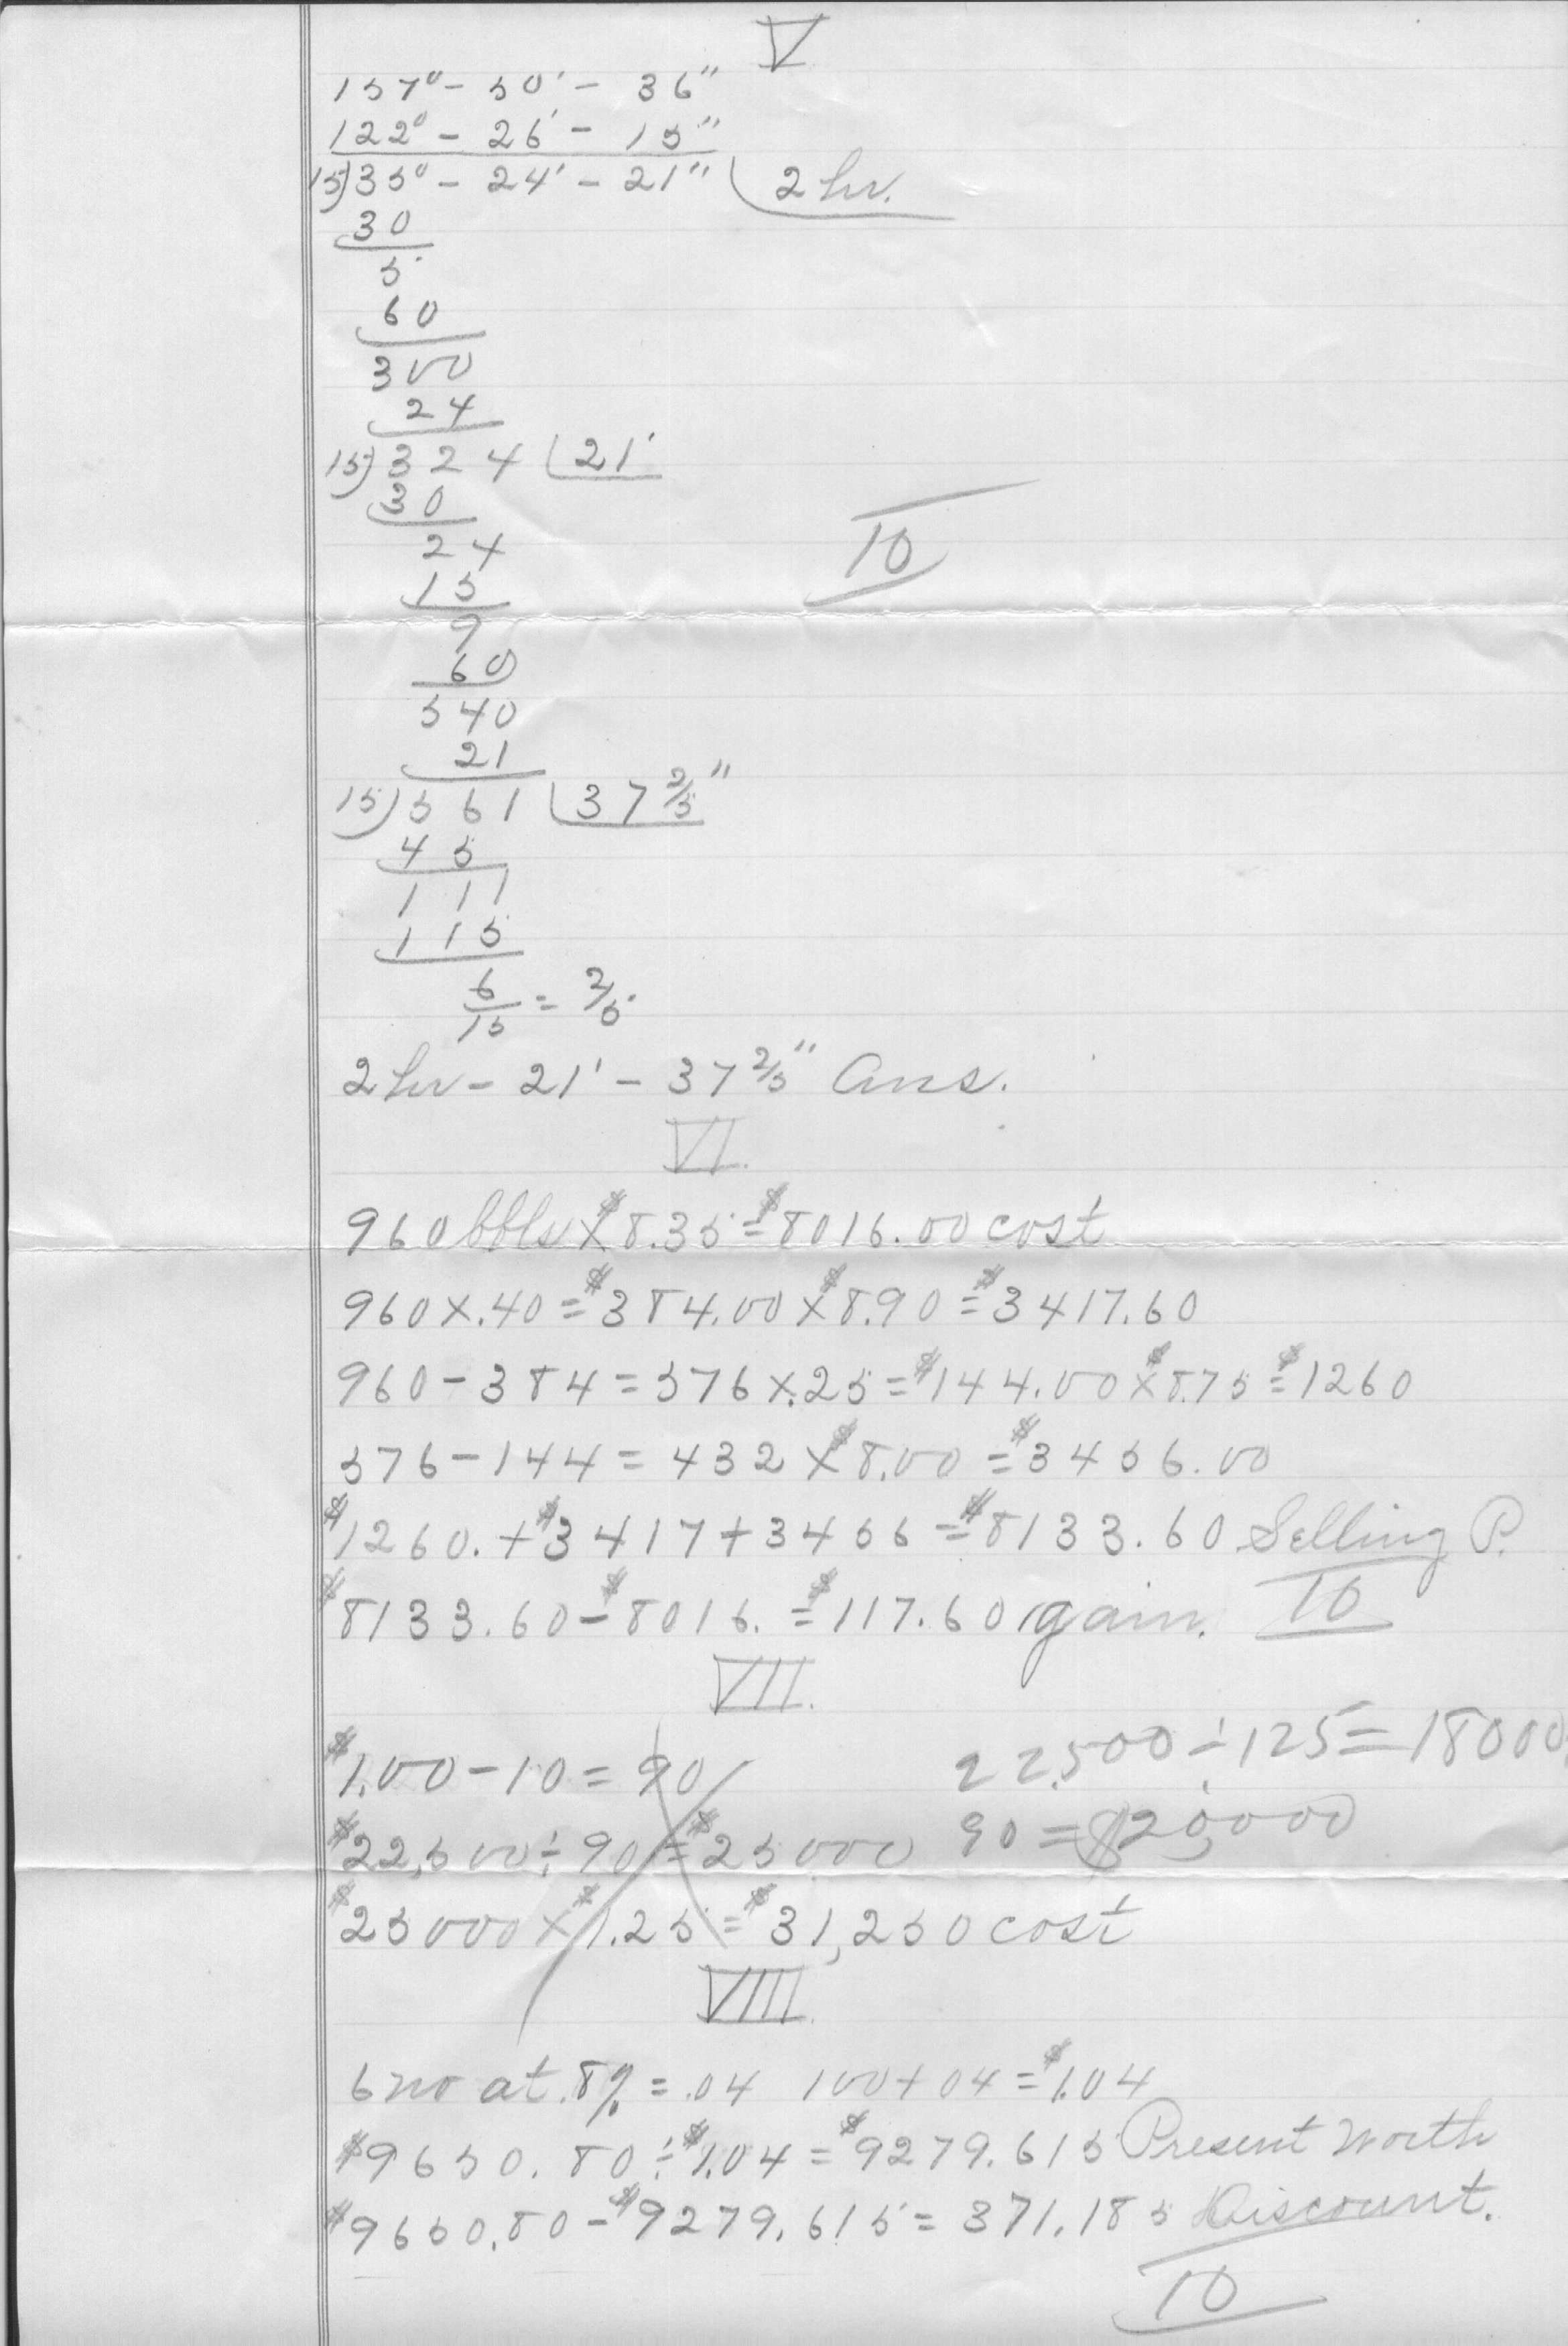 V
157° - 50' - 36"
122° - 26' - 15"
15)35° - 24' - 21" (2 hr.
30
5
60
300
24
15)324 (21'
30
24
15
10
9
60
540
21
15)561 (37 2/5"
45
111
115
6/15 = 2/5
2 hr - 21' - 37 2/5" Ans.
VI.
960 bbls × $8.35 = $8016.00 cost
960 × .40 = $384.00 × $8.90 = $3417.60
960 - 384 = 576 × .25 = $144.00 × $8.75 = $1260
576 - 144 = 432 × $8.00 = $3456.00
$1260. + $3417 + 3456 = $8133.60 Selling P.
$8133.60 - $8016. = $117.60 gain.
10
VII.
$1.00 - 10 = 90
22,500 ÷ 125 = 18000
$22,500 ÷ 90 = $25000
90 = $20,000
$25000 × $1.25 = $31,250 cost
VIII.
6 mo at .8% = .04 100 + 04 = $1.04
$9650.80 ÷ $1.04 = $9279.615 Present Worth
$9650.80 - $9279.615 = 371.185 Discount.
10